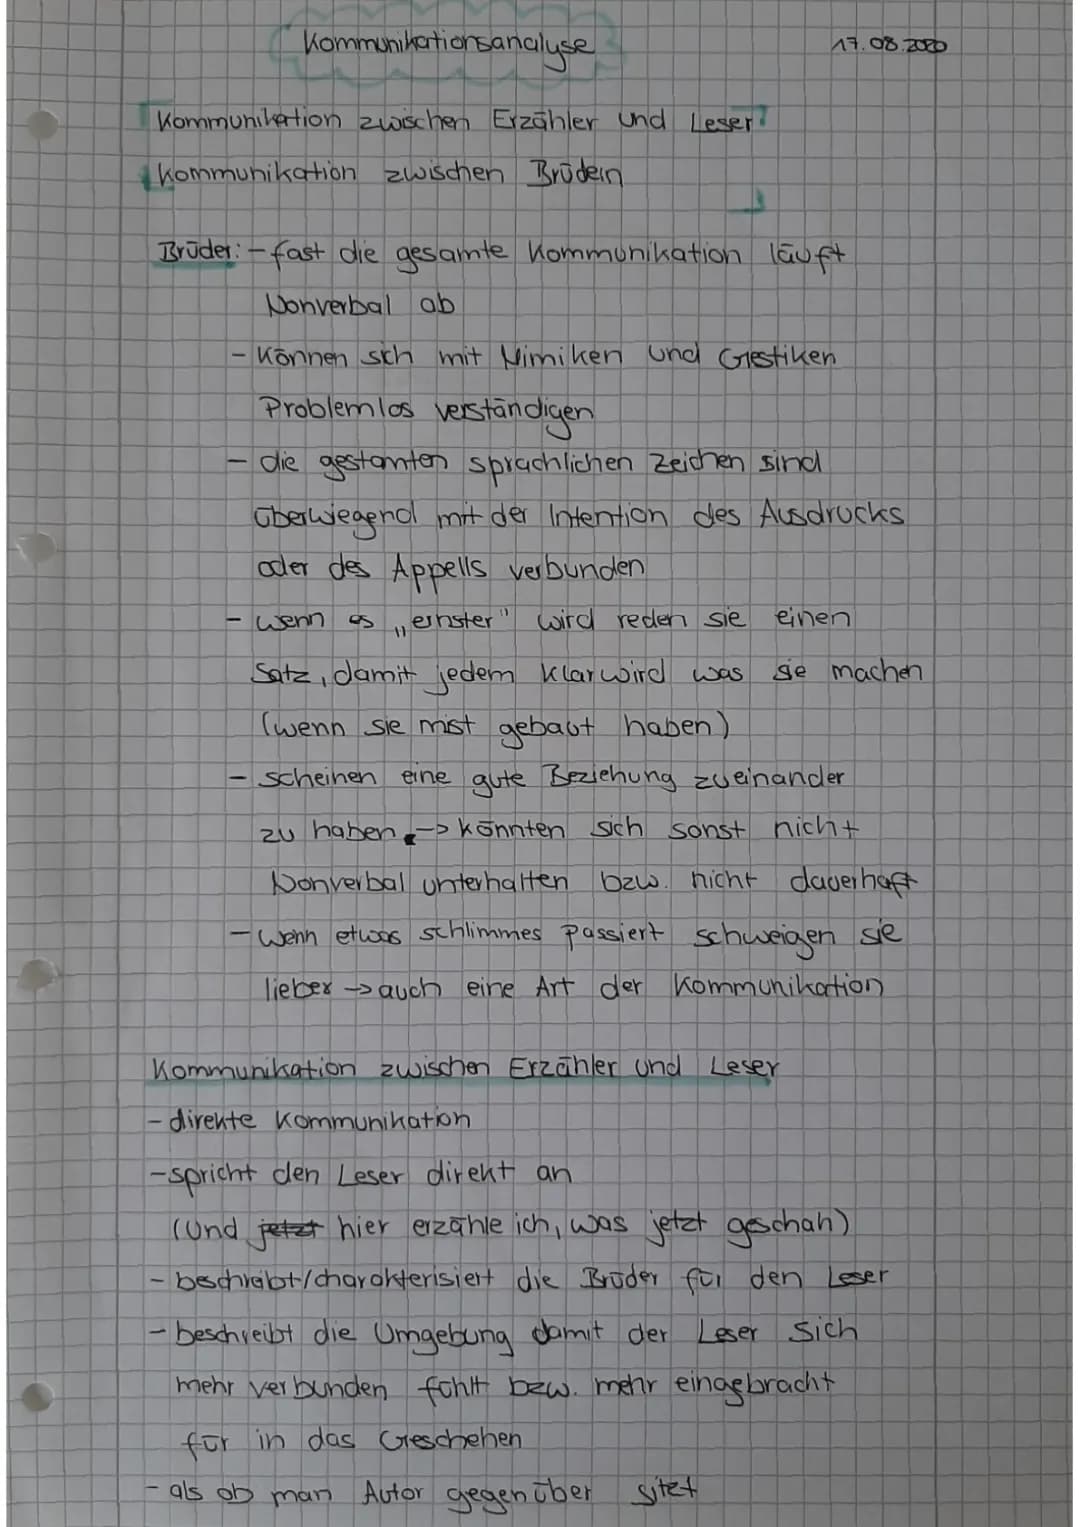 Kommunikationsanalyse 17.08.2020
Kommunikation zwischen Erzähler und Leser
Kommunikation zwischen Brüdern
Brüder: - fast die gesamte Kommunikation läuft
Nonverbal ab
- Können sich mit Mimiken und Gestiken
Problemlos verständigen
- die gestamten sprachlichen Zeichen sind
überwiegend mit der Intention des Ausdrucks
oder des Appells verbunden
- wenn es „ernster" wird reden sie einen
Satz, damit jedem klar wird was sie machen
(wenn sie mist gebaut haben)
- scheinen eine gute Beziehung zueinander
zu haben → könnten sich sonst nicht
Nonverbal unterhalten bzw. nicht dauerhaft
- wenn etwas schlimmes passiert schweigen sie
lieber → auch eine Art der Kommunikation
Kommunikation zwischen Erzähler und Leser
- direkte Kommunikation
- spricht den Leser direkt an
(Und jetzt hier erzähle ich, was jetzt geschah)
- beschreibt/charakterisiert die Brüder für den Leser
- beschreibt die Umgebung damit der Leser sich
mehr verbunden fühlt bzw. mehr eingebracht
für in das Geschehen
- als ob man Autor gegenüber sitzt